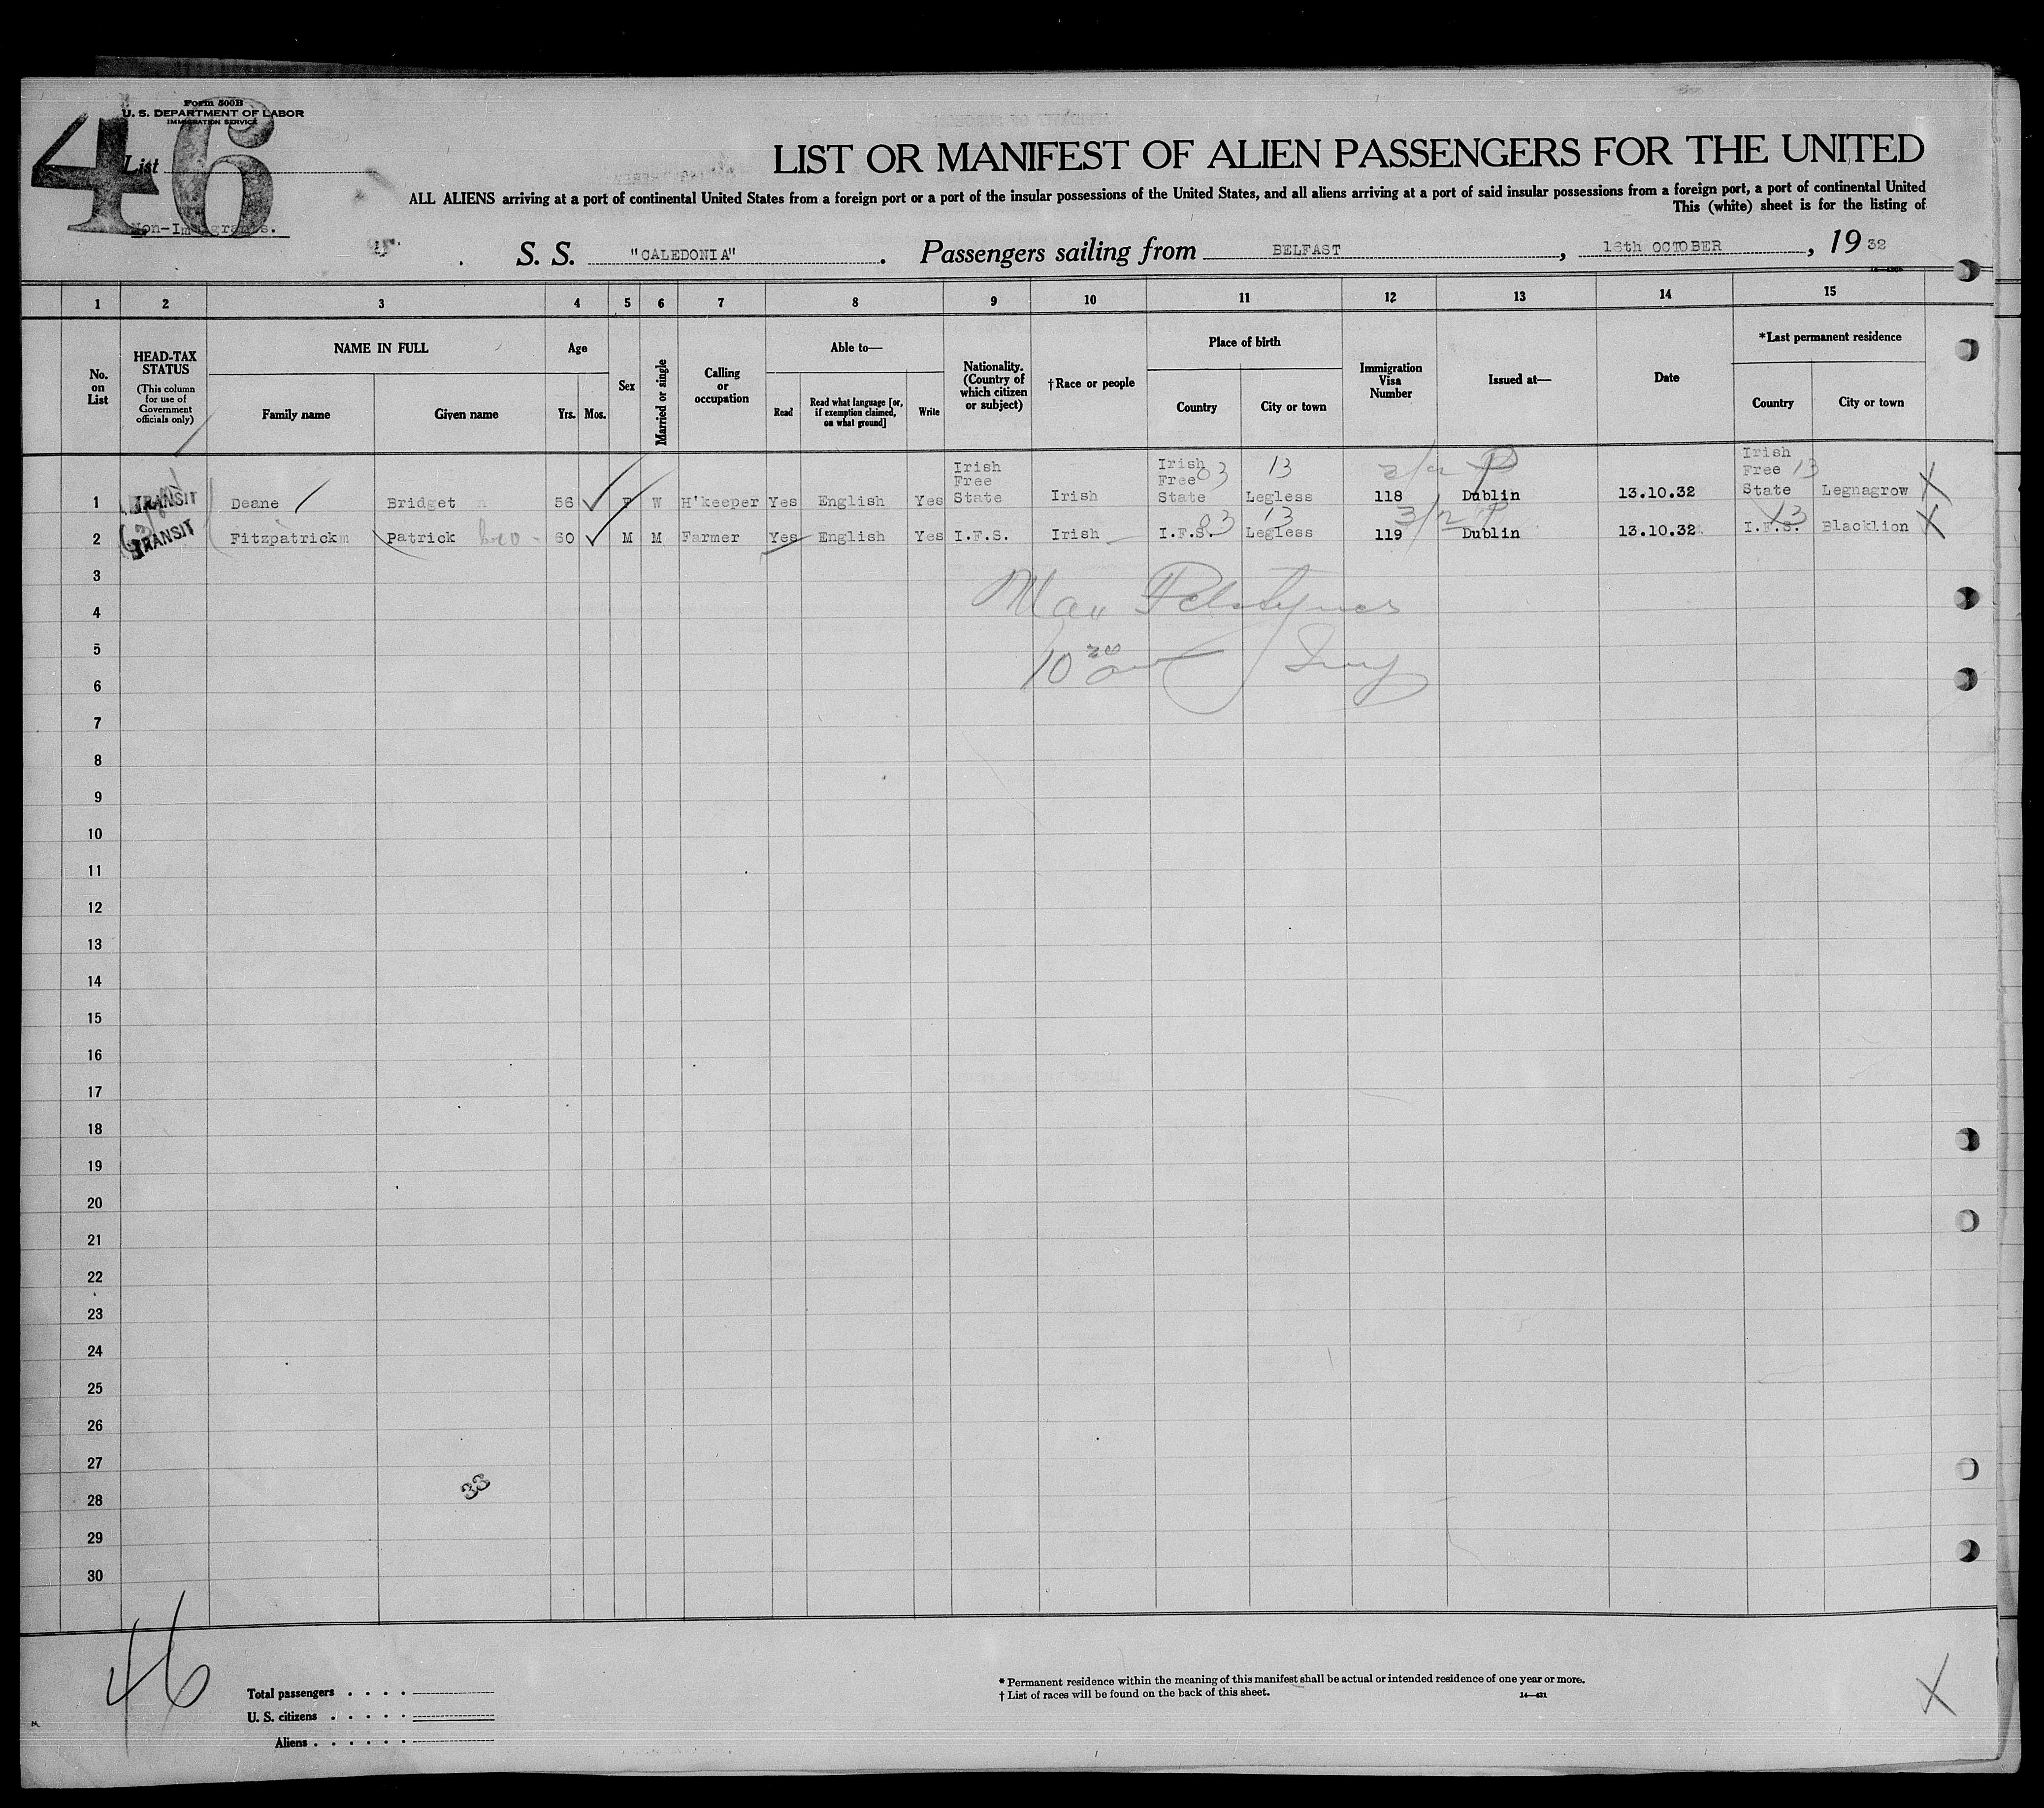 46
Form 500B
U. S. DEPARTMENT OF LABOR
IMMIGRATION SERVICE
List
Non-Immigrants.
LIST OR MANIFEST OF ALIEN PASSENGERS FOR THE UNITED
ALL ALIENS arriving at a port of continental United States from a foreign port or a port of the insular possessions of the United States, and all aliens arriving at a port of said insular possessions from a foreign port, a port of continental United
This (white) sheet is for the listing of
S. S. "CALEDONIA". Passengers sailing from BELFAST, 16th OCTOBER, 1932
1 2 3 4 5 6 7 8 9 10 11 12 13 14 15
No. on List
HEAD-TAX STATUS
(This column for use of Government officials only)
NAME IN FULL
Family name
Given name
Age
Yrs. Mos.
Sex
Married or single
Calling or occupation
Able to—
Read
Read what language [or, if exemption claimed, on what ground]
Write
Nationality. (Country of which citizen or subject)
†Race or people
Place of birth
Country
City or town
Immigration Visa Number
Issued at—
Date
*Last permanent residence
Country
City or town
1 TRANSIT Deane Bridget 56 F W H'keeper Yes English Yes Irish Free State Irish Irish Free State 03 13 Legless 118 Dublin 13.10.32 Irish Free State 13 Legnagrow X
2 TRANSIT Fitzpatrick Patrick bro 60 M M Farmer Yes English Yes I.F.S. Irish I.F.S. 03 13 Legless 119 3/2 P Dublin 13.10.32 I.F.S. 13 Blacklion X
3
4
5
6
7
8
9
10
11
12
13
14
15
16
17
18
19
20
21
22
23
24
25
26
27
28
29
30
33
46
Total passengers
U. S. citizens
Aliens
* Permanent residence within the meaning of this manifest shall be actual or intended residence of one year or more.
† List of races will be found on the back of this sheet.
14—431
X